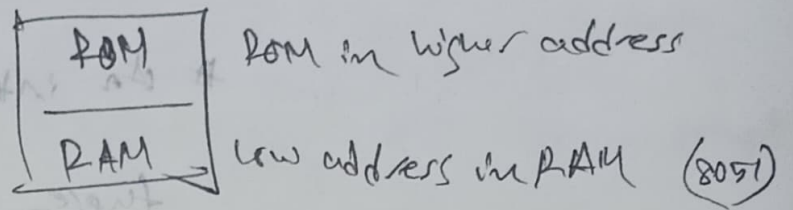 ROM ROM in higher address
RAM Low address in RAM (8051)